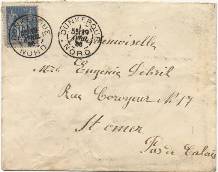 DUNKERQUE
NORD
Mademoiselle
Melle Eugénie Debril
Rue Courteyer Nº 17
St Omer
Pas de Calais